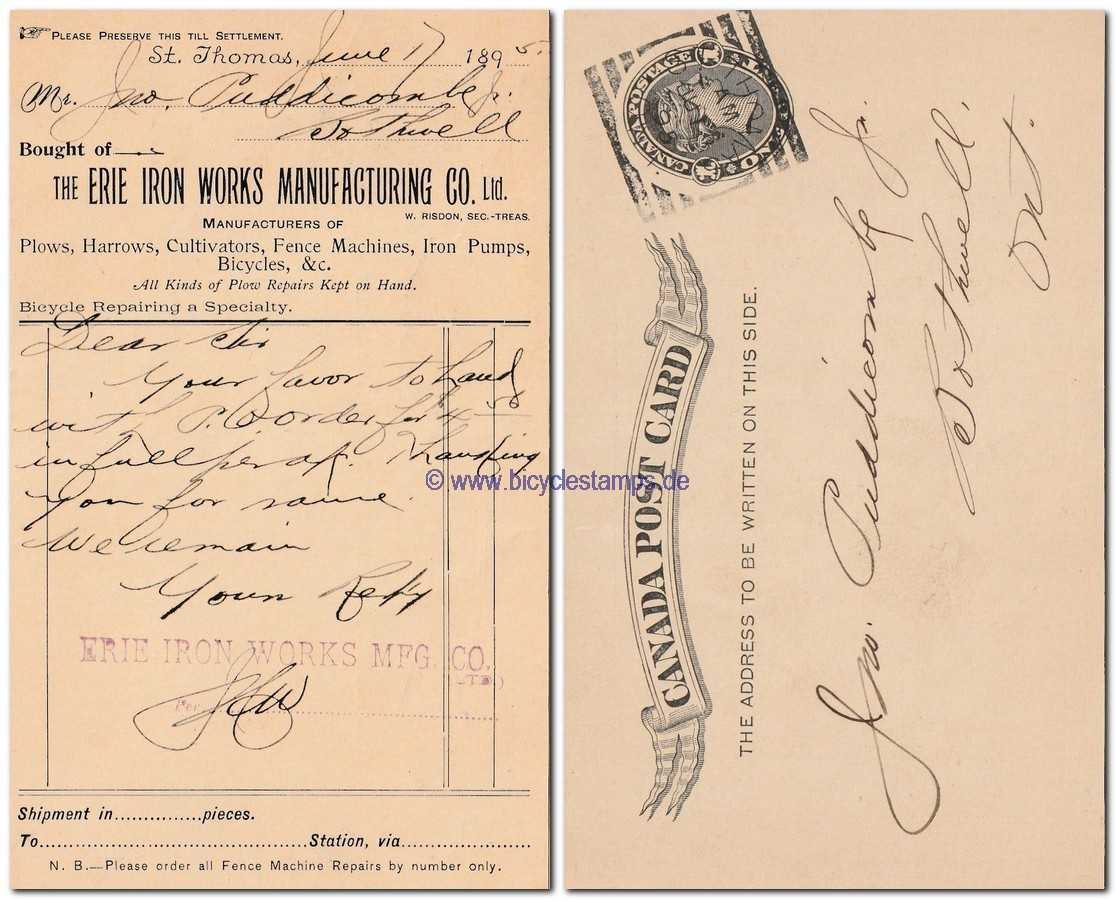 PLEASE PRESERVE THIS TILL SETTLEMENT.
St. Thomas, June 17 1895.
Mr. Jno. Puddicombe Jr.
Bothwell
Bought of
THE ERIE IRON WORKS MANUFACTURING CO. Ltd.
W. RISDON, SEC.-TREAS.
MANUFACTURERS OF
Plows, Harrows, Cultivators, Fence Machines, Iron Pumps,
Bicycles, &c.
All Kinds of Plow Repairs Kept on Hand.
Bicycle Repairing a Specialty.
Dear Sir
Your favor to hand
with P. O order for 4 50
in full per a/c. Thanking
you for same.
We remain
Yours Respy
ERIE IRON WORKS MFG. CO.
(LTD.)
Per
Shipment in...............pieces.
To.............................................Station, via......................
N. B.—Please order all Fence Machine Repairs by number only.
© www.bicyclestamps.de
CANADA POSTAGE
1
CANADA POST CARD
THE ADDRESS TO BE WRITTEN ON THIS SIDE.
Jno. Puddicombe Jr.
Bothwell.
Ont.